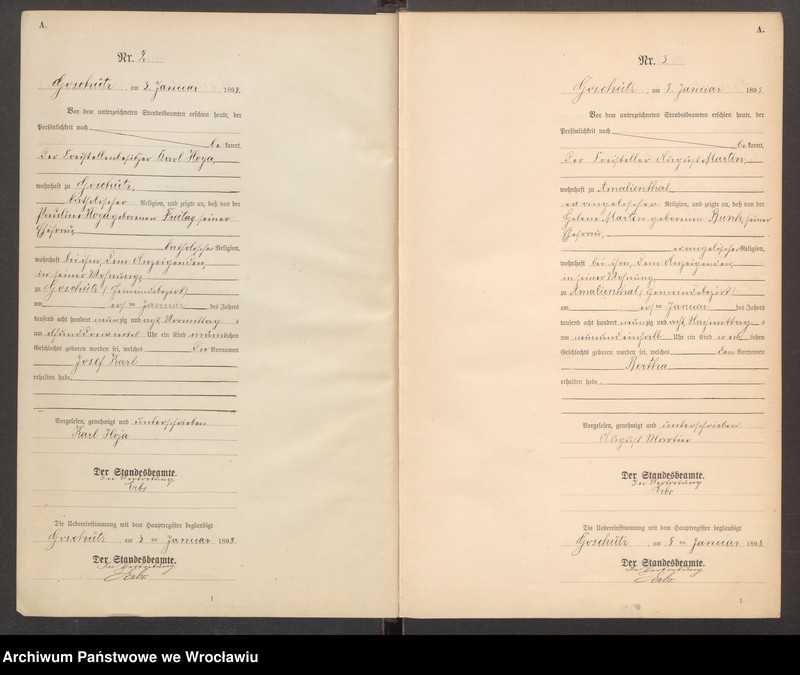 A.
Nr. 2.
Goschütz, am 3. Januar 1898.
Vor dem unterzeichneten Standesbeamten erschien heute, der
Persönlichkeit nach
be kannt,
Der Freistellenbesitzer Karl Hoja
wohnhaft zu Goschütz,
katholischer Religion, und zeigte an, daß von der
Pauline Hoja geborenen Freitag seiner
Ehefrau,
katholischer Religion,
wohnhaft bei ihm, dem Anzeigenden,
in seiner Wohnung,
zu Goschütz (Gemeindebezirk)
am ersten Januar des Jahres
tausend acht hundert neunzig und acht Vormittags
um Uhr ein Kind männlichen
Geschlechts geboren worden sei, welches Vornamen
Josef Karl
erhalten habe.
Vorgelesen, genehmigt und unterschrieben
Karl Hoja
Der Standesbeamte.
In Vertretung
Die Uebereinstimmung mit dem Hauptregister beglaubigt
Goschütz, am 3ten Januar 1898.
Der Standesbeamte.
In Vertretung
1
A.
Nr. 3.
Goschütz, am 5. Januar 1898.
Vor dem unterzeichneten Standesbeamten erschien heute, der
Persönlichkeit nach
be kannt,
Der Freisteller August Martin,
wohnhaft zu Amalienthal
evangelischer Religion, und zeigte an, daß von der
Martin geborenen seiner
Ehefrau,
evangelischer Religion,
wohnhaft bei ihm, dem Anzeigenden,
in seiner Wohnung
zu Amalienthal (Gemeindebezirk)
am ersten Januar des Jahres
tausend acht hundert neunzig und acht, Nachmittags
um neun und einhalb Uhr ein Kind weiblichen
Geschlechts geboren worden sei, welches den Vornamen
Bertha
erhalten habe.
Vorgelesen, genehmigt und unterschrieben
August Martin
Der Standesbeamte.
In Vertretung
Die Uebereinstimmung mit dem Hauptregister beglaubigt
Goschütz, am 5ten Januar 1898.
Der Standesbeamte.
In Vertretung
1
Archiwum Państwowe we Wrocławiu